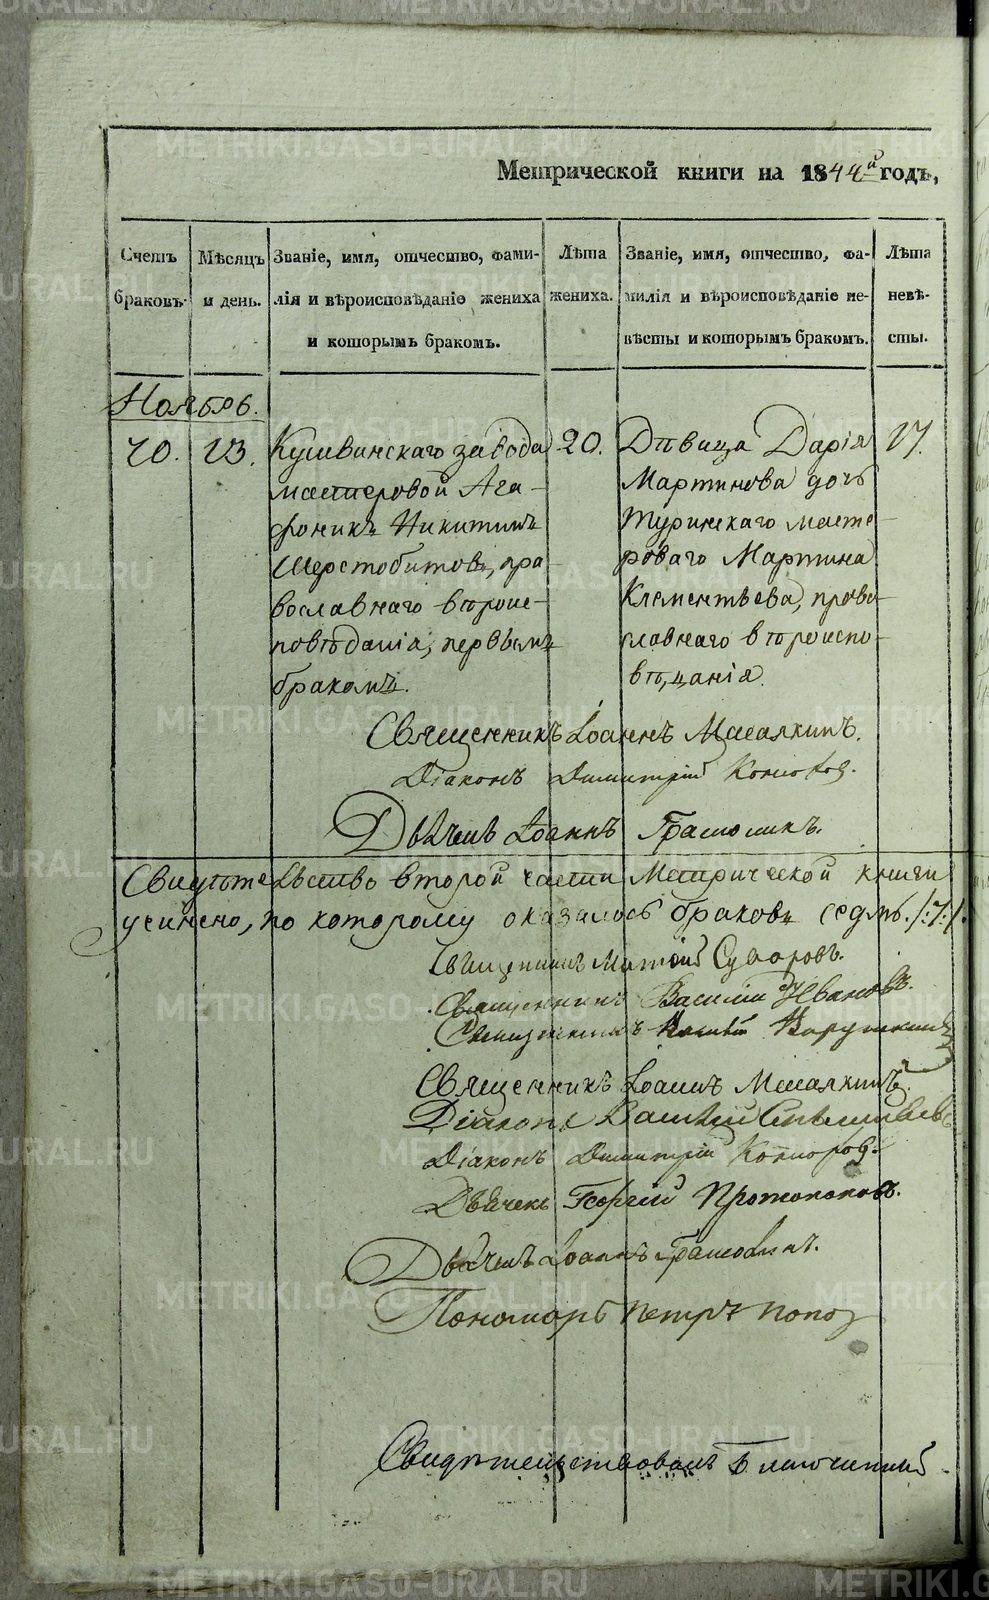 Метрической книги на 1844й годъ,
Счетъ браковъ.
Мѣсяцъ и день.
Званіе, имя, отчество, фами-
лія и вѣроисповѣданіе жениха
и которымъ бракомъ.
Лѣта жениха.
Званіе, имя, отчество, фа-
милія и вѣроисповѣданіе не-
вѣсты и которымъ бракомъ.
Лѣта невѣ-
сты.
Ноябрь.
70. 13.
Кушвинскаго завода
мастеровой Ага-
фоникъ Никитинъ
Шерстобитовъ, пра-
вославнаго вѣроис-
повѣданія, первымъ
бракомъ.
20.
Дѣвица Дарія
Мартинова дочь
Туринскаго масте-
роваго Мартина
Клементьева, право-
славнаго вѣроиспо-
вѣданія.
17.
Священникъ Іоаннъ
Діаконъ Димитрій
Дьячекъ Іоаннъ
Свидѣтельство второй части Метрической книги
учинено, по которому оказалось браковъ седмь /:7:/.
Священникъ Суворовъ.
Священникъ Василій Ивановъ.
Священникъ
Священникъ Іоаннъ
Діаконъ Василій
Діаконъ Димитрій
Дьячекъ Георгій Протопоповъ.
Дьячекъ Іоаннъ
Пономарь Петръ Попов
Свидѣтельствовалъ Благочинный
METRIKI.GASO-URAL.RU